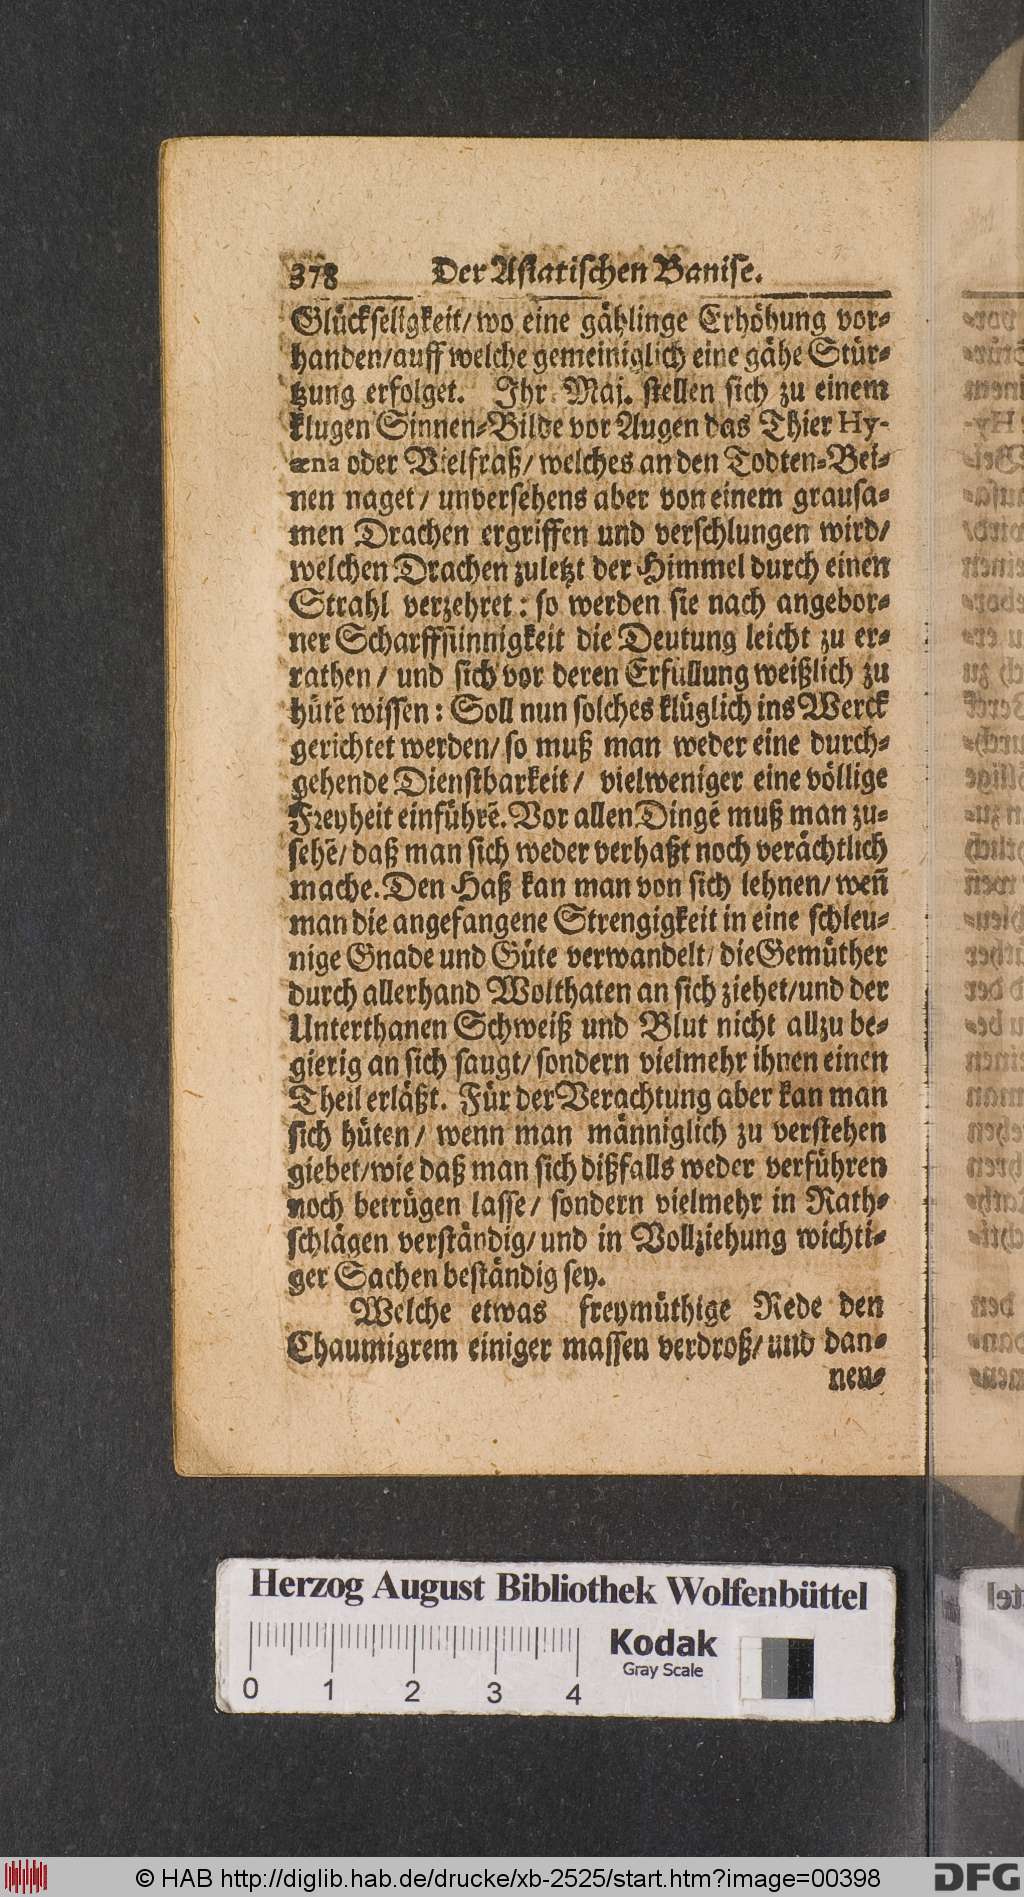 378 Der Asiatischen Banise.
Glückseligkeit/ wo eine gählinge Erhöhung vor-
handen/ auff welche gemeiniglich eine gähe Stür-
tzung erfolget. Ihr Maj. stellen sich zu einem
klugen Sinnen-Bilde vor Augen das Thier Hy-
æna oder Vielfraß/ welches an den Todten-Bei-
nen naget/ unversehens aber von einem grausa-
men Drachen ergriffen und verschlungen wird/
welchen Drachen zuletzt der Himmel durch einen
Strahl verzehret: so werden sie nach angebor-
ner Scharffsinnigkeit die Deutung leicht zu er-
rathen/ und sich vor deren Erfüllung weißlich zu
hütē wissen: Soll nun solches klüglich ins Werck
gerichtet werden/ so muß man weder eine durch-
gehende Dienstbarkeit/ vielweniger eine völlige
Freyheit einführē. Vor allen Dingē muß man zu-
sehē/ daß man sich weder verhaßt noch verächtlich
mache. Den Haß kan man von sich lehnen/ weñ
man die angefangene Strengigkeit in eine schleu-
nige Gnade und Güte verwandelt/ die Gemüther
durch allerhand Wolthaten an sich ziehet/ und der
Unterthanen Schweiß und Blut nicht allzu be-
gierig an sich saugt/ sondern vielmehr ihnen einen
Theil erläßt. Für der Verachtung aber kan man
sich hüten/ wenn man männiglich zu verstehen
giebet/ wie daß man sich dißfalls weder verführen
noch betrügen lasse/ sondern vielmehr in Rath-
schlägen verständig/ und in Vollziehung wichti-
ger Sachen beständig sey.
Welche etwas freymüthige Rede den
Chaumigrem einiger massen verdroß/ und dan-
nen-
Herzog August Bibliothek Wolfenbüttel
Kodak
Gray Scale
0 1 2 3 4
© HAB http://diglib.hab.de/drucke/xb-2525/start.htm?image=00398
DFG